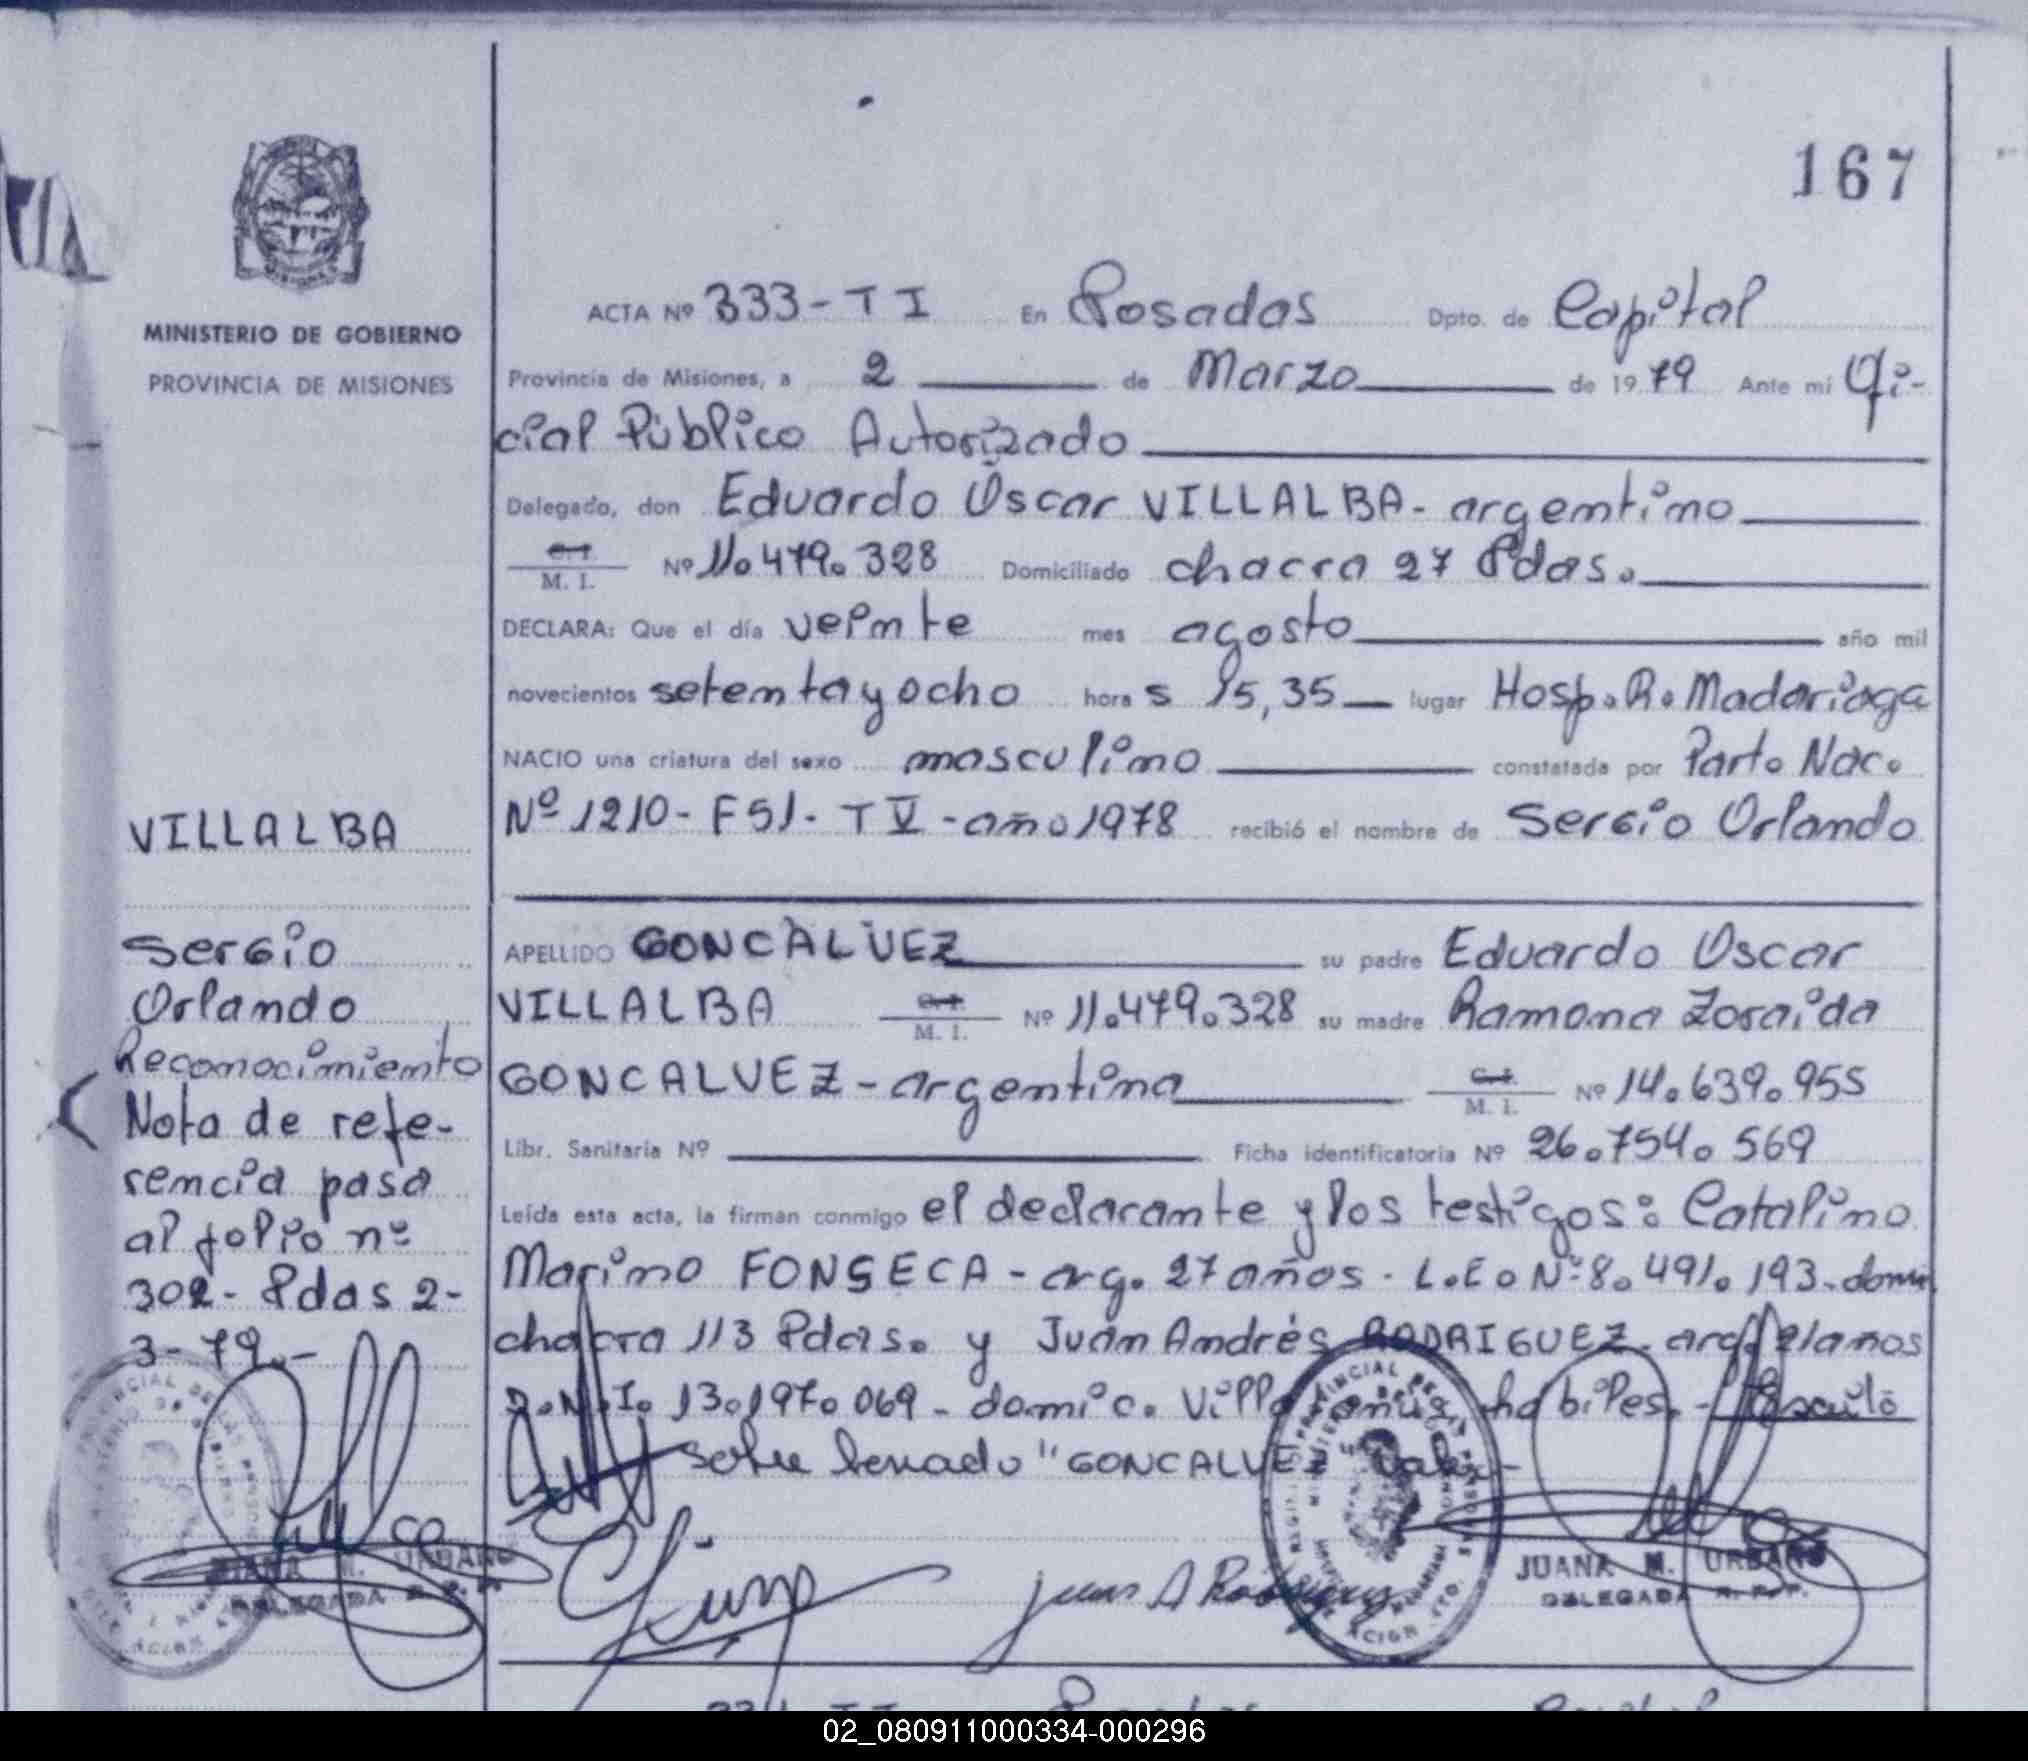 167
MISIONES
MINISTERIO DE GOBIERNO
PROVINCIA DE MISIONES
ACTA Nº 333-TI En Posadas Dpto. de Capital
Provincia de Misiones, a 2 de Marzo de 1979 Ante mi Ofi-
cial Público Autorizado
Delegado, don Eduardo Oscar VILLALBA - argentino
C.I.
M. I. Nº 11.479.328 Domiciliado chacra 27 Pdas.
DECLARA: Que el día veinte mes agosto año mil
novecientos setenta y ocho horas 15,35 lugar Hosp. R. Madariaga
NACIO una criatura del sexo masculino constatada por Parto Nac.
Nº 1210 - F 51 - T V - año 1978 recibió el nombre de Sergio Orlando
APELLIDO GONCALVEZ su padre Eduardo Oscar
VILLALBA C.I.
M. I. Nº 11.479.328 su madre Ramona Zoraida
GONCALVEZ - argentina C.I.
M. I. Nº 14.639.955
Libr. Sanitaria Nº Ficha identificatoria Nº 26.754.569
Leída esta acta, la firman conmigo el declarante y los testigos: Catalino
Marino FONSECA - arg. 27 años - L.E. Nº 8.491.193 - domi
chacra 113 Pdas. y Juan Andrés RODRIGUEZ - arg. 21 años
D.N.I. 13.197.069 - domic. Villa habiles. -
sobre borrado "GONCALVEZ" Vale. -
Juan A Rodriguez
JUANA M. URBANO
DELEGADA R.P.P.
VILLALBA
Sergio
Orlando
Reconocimiento
Nota de refe-
rencia pasa
al folio nº
302 - Pdas 2-
3-79.-
JUANA M. URBANO
DELEGADA R.P.P.
334-TI Posadas Capital
02_080911000334-000296